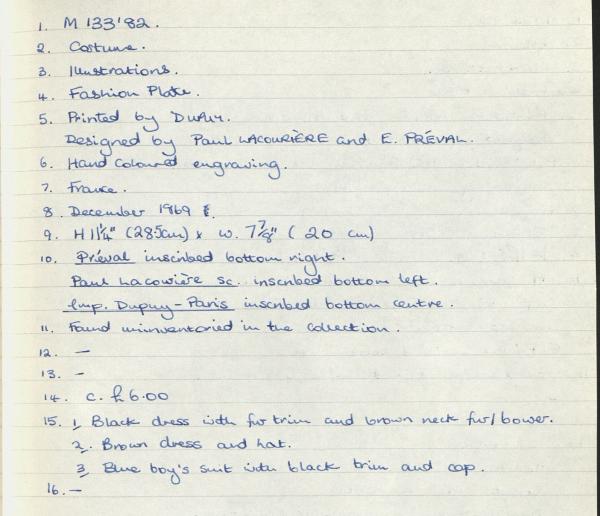 1. M 133'82.
2. Costume.
3. Illustrations.
4. Fashion Plate.
5. Printed by DUPUY.
Designed by Paul LACOURIÈRE and E. PRÉVAL.
6. Hand Coloured engraving.
7. France.
8. December 1969
9. H 11¼" (28.5cm) x W. 7⅞" (20 cm)
10. Préval inscribed bottom right.
Paul Lacourière sc. inscribed bottom left.
Imp. Dupuy-Paris inscribed bottom centre.
11. Found uninventoried in the collection.
12. —
13. -
14. C. £6.00
15. 1. Black dress with fur trim and brown neck fur/bower.
2. Brown dress and hat.
3. Blue boy's suit with black trim and cap.
16. —